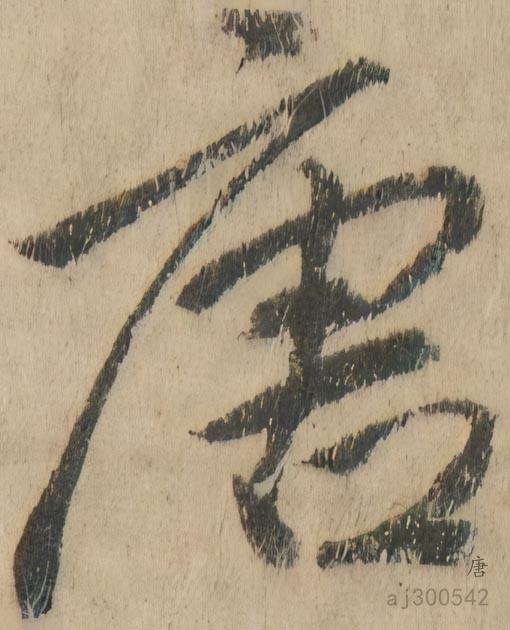 唐
唐
aj300542